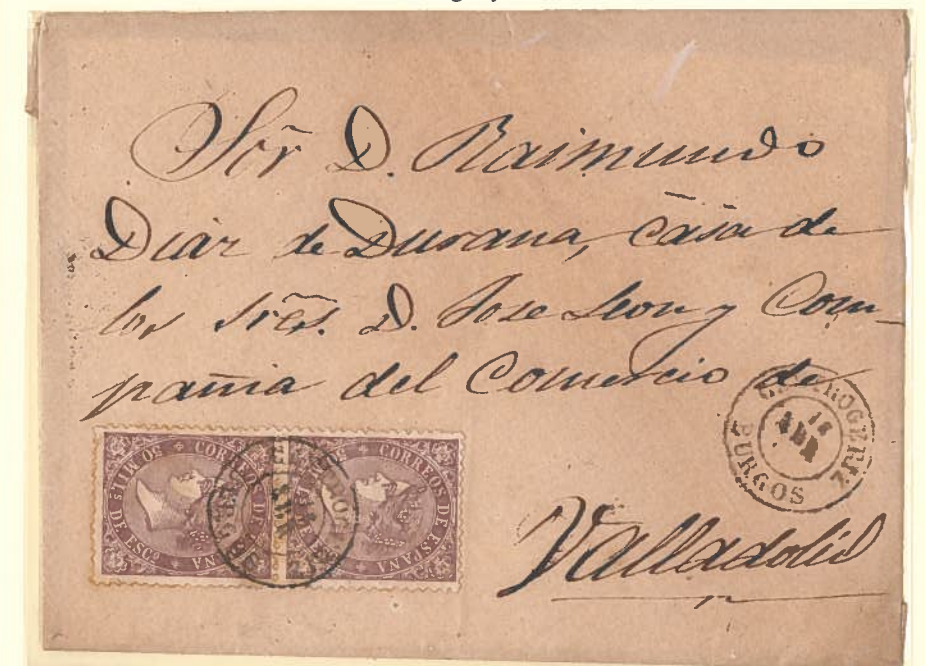 Sor D. Raimundo
Diaz de Durana, casa de
los Sres. D. Jose Leon y Com-
pañia del Comercio de
Valladolid
CASTROGERIZ
BURGOS
ABR
CORREOS DE ESPAÑA
50 MILs DE ESCo
CORREOS DE ESPAÑA